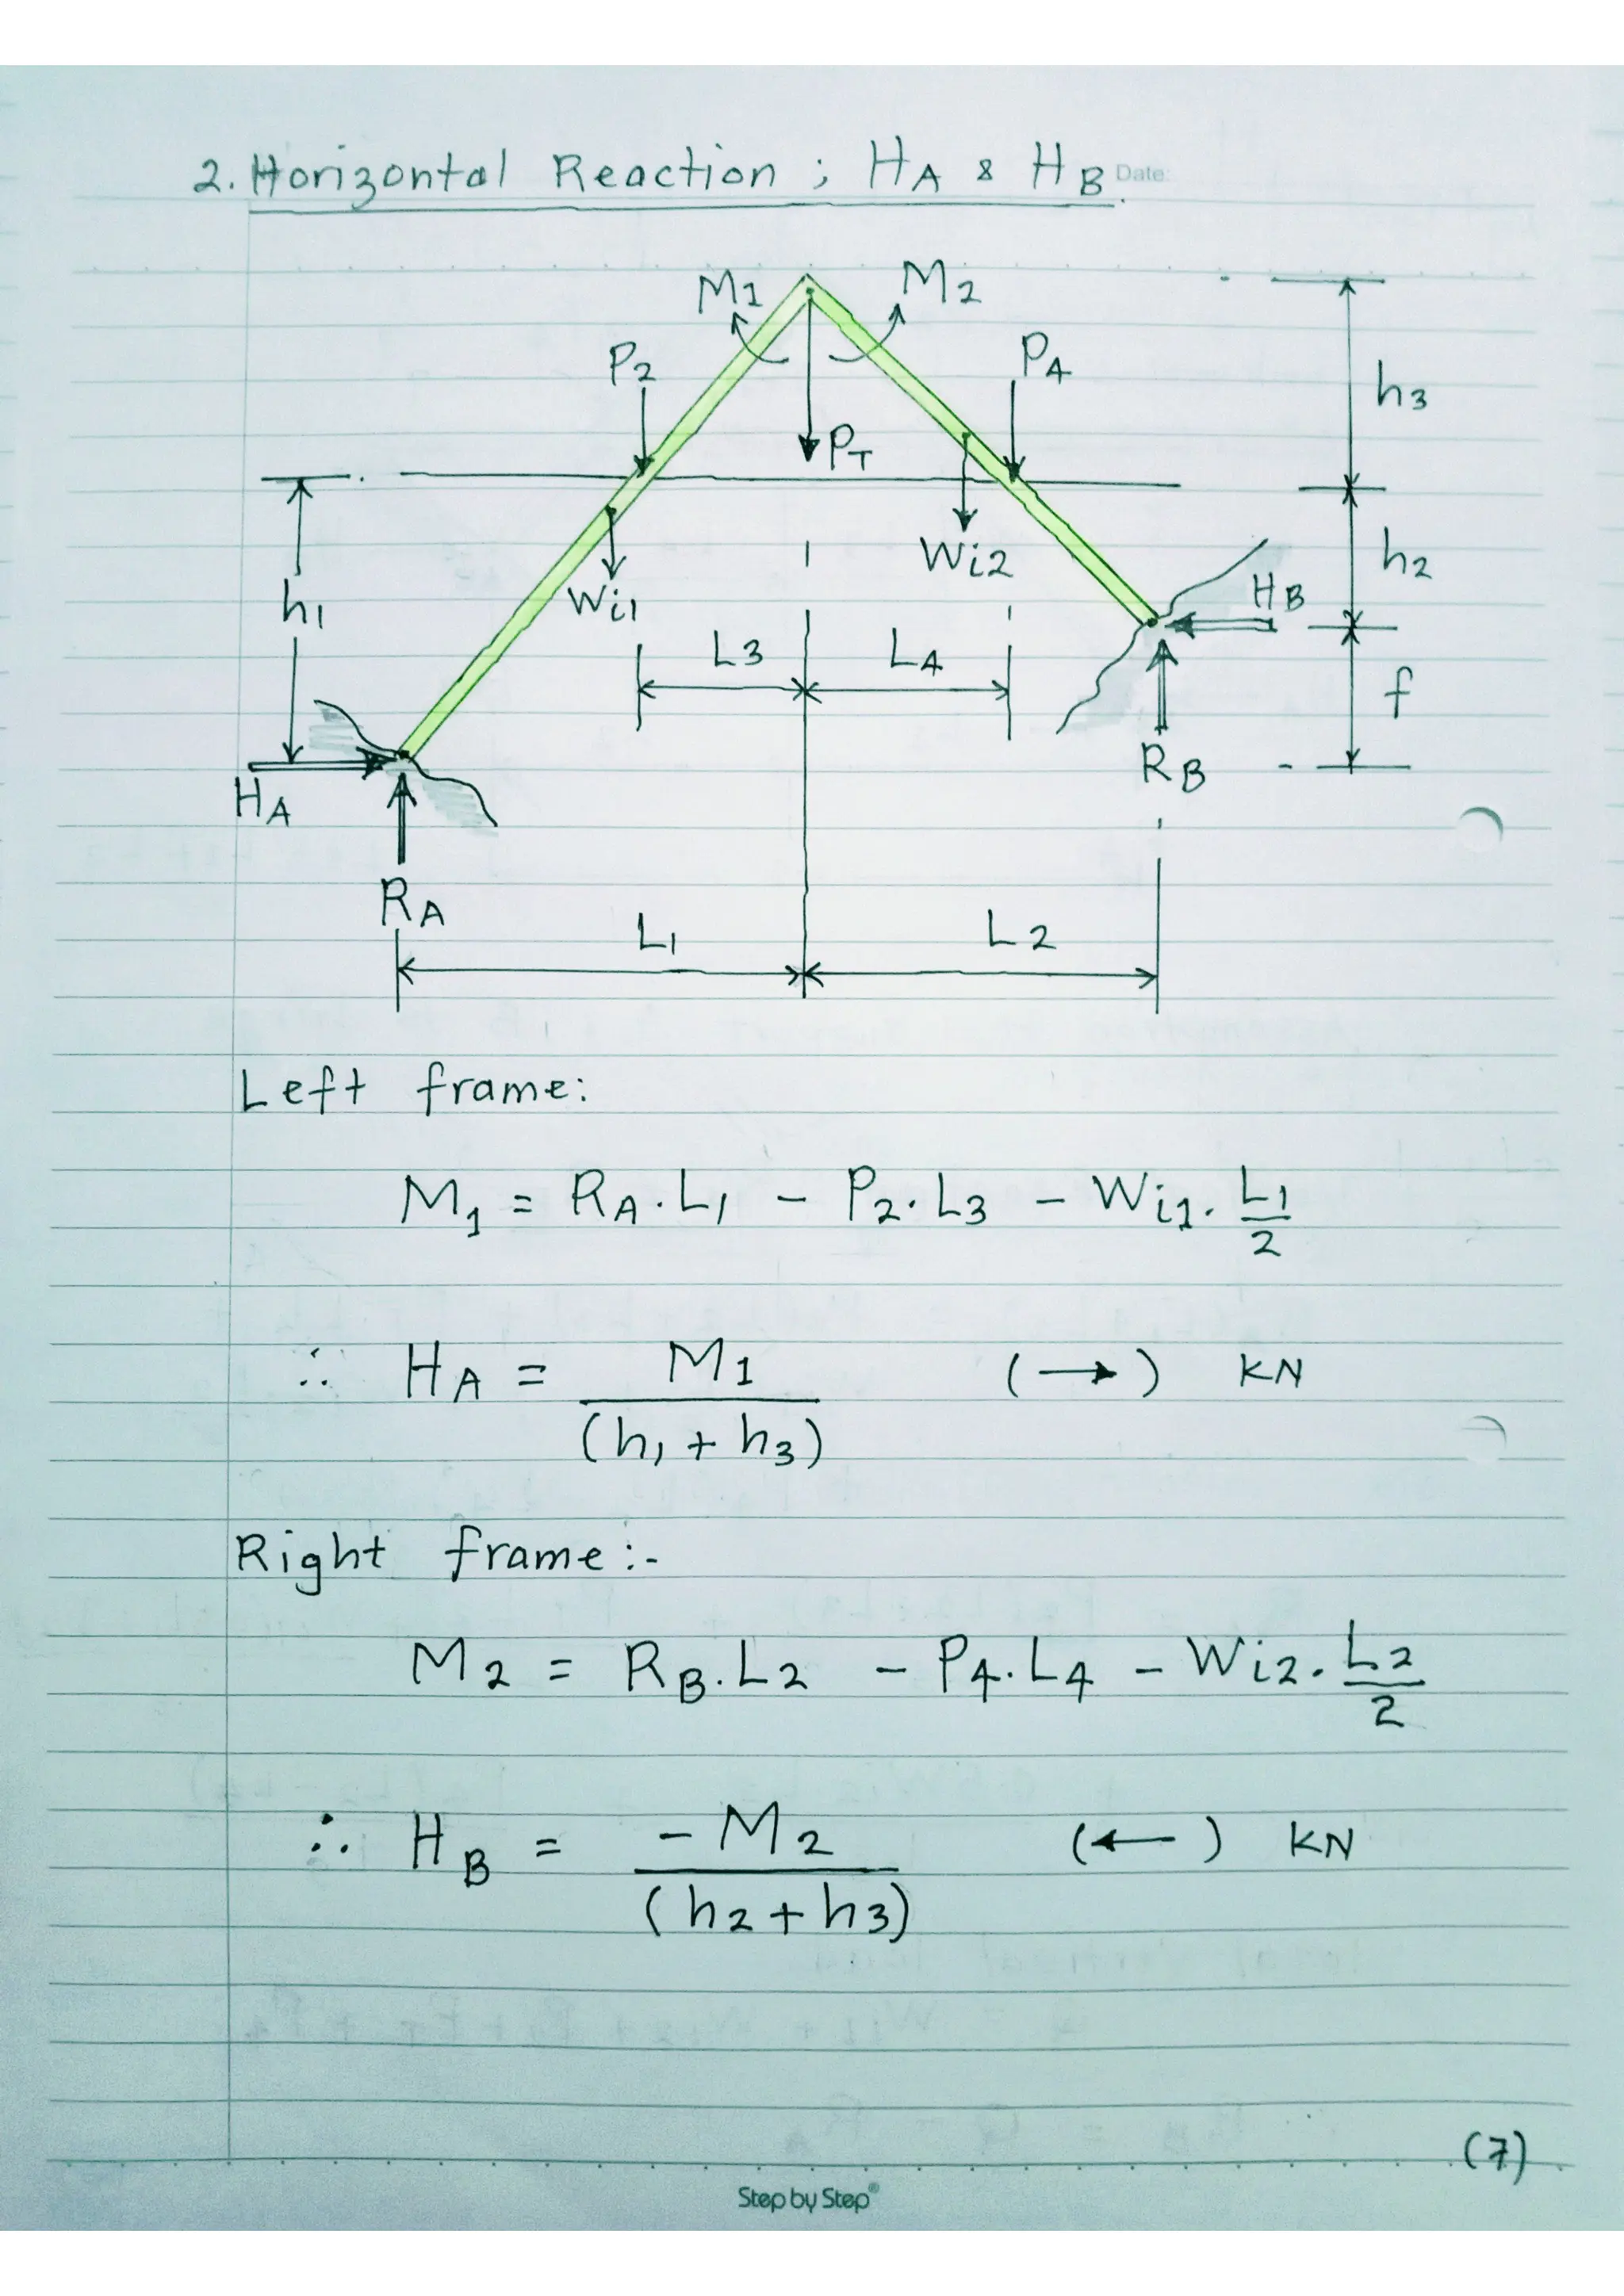 2. Horizontal Reaction ; HA & HB.
Date:
M1 M2
P2 P4
PT h3
Wi1 Wi2 h2
h1 HB
L3 L4 f
HA RB
RA
L1 L2
Left frame:
M1 = RA . L1 - P2 . L3 - Wi1 . L1/2
∴ HA = M1/(h1 + h3) (→) KN
Right frame :-
M2 = RB . L2 - P4 . L4 - Wi2 . L2/2
∴ HB = -M2/(h2 + h3) (←) KN
(7)
Step by Step®